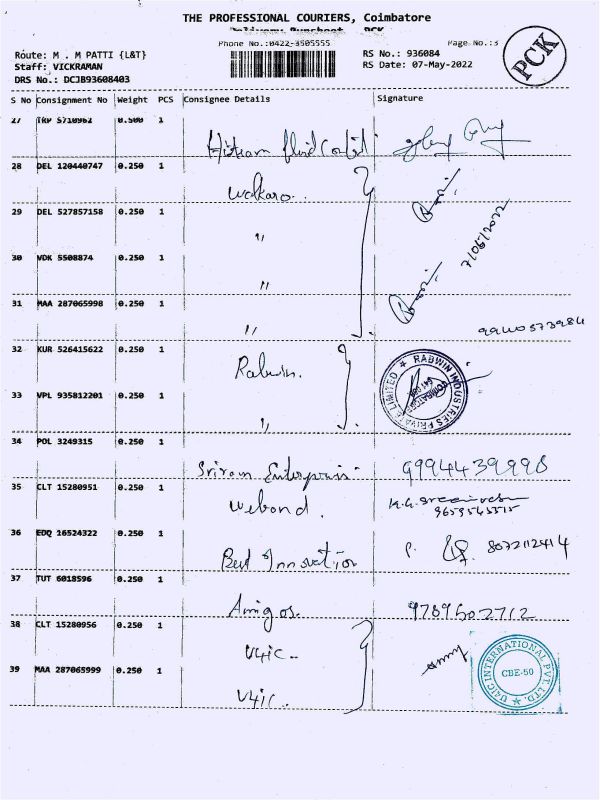 THE PROFESSIONAL COURIERS, Coimbatore
Delivery Runsheet - PCK
Phone No.:0422-3505555 Page No.:3
PCK
Route: M . M PATTI {L&T} RS No.: 936084
Staff: VICKRAMAN RS Date: 07-May-2022
DRS No.: DCJB93608403
S No Consignment No Weight PCS Consignee Details Signature
27 TRP 5710962 0.500 1
28 DEL 120440747 0.250 1 Walkaro..
29 DEL 527857158 0.250 1 "
7/06/2022
30 VDK 5508874 0.250 1 "
31 MAA 287065998 0.250 1 "
9940573984
32 KUR 526415622 0.250 1 Rabwin.
RABWIN INDUSTRIES PRIVATE LIMITED
COIMBATORE
33 VPL 935812201 0.250 1 "
34 POL 3249315 0.250 1 Sriram Enterprises 9994439998
35 CLT 15280951 0.250 1 Webond.
9659545515
36 EDQ 16524322 0.250 1 Best Innovation P. 8072112414
37 TUT 6018596 0.250 1 Amigos. 9789502712
38 CLT 15280956 0.250 1 U4ic -
U4IC INTERNATIONAL PVT. LTD.
CBE-50
39 MAA 287065999 0.250 1 U4ic.